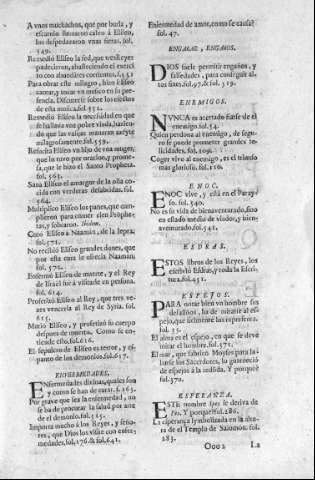 A vnos muchachos, que por burla, y
escarnio llamaron calvo à Eliseo,
los despedaçaron vnas fieras. fol.
549.
Remedió Eliseo la sed, que tres Reyes
padecieron, abasteciendo el exercito
con abundantes corrientes. f.551
Para obrar este milagro, hizo Eliseo
cantar, y tocar en su presencia.
Discurrese sobre los efectos
de esta musica. fol. 552.
Remedió Eliseo la necessidad en que
se hallava vna pobre viuda, haziendo
que las vasijas manasen azeyte
milagrosamente. fol. 559.
Resucita Eliseo vn hijo de vna muger,
que lo tuvo por oracion, y promessa,
que le hizo el Santo Propheta.
fol. 563.
Sana Eliseo el amargor de la olla cocida
con yervas desabridas. fol.
564.
Multiplicó Eliseo los panes, que cumplieron
para comer cien Prophetas,
y sobraron. ibidem.
Curó Eliseo à Naaman, de la lepra;
fol. 571.
No recibió Eliseo grandes dones, que
por esta cura le ofrecia Naaman.
fol. 572.
Enfermó Eliseo de muerte, y el Rey
de Israel fue à visitarle en persona.
fol. 614.
Profetizó Eliseo al Rey, que tres vezes
venceria al Rey de Syria. fol.
615.
Murió Eliseo, y profetizó su cuerpo
despues de muerto. Como se entiende
esto. fol. 616.
El sepulcro de Eliseo es terror, y espanto
de los demonios. fol. 617.
ENFERMEDADES.
ENfermedades divinas, quales son
y como se han de curar. f. 163.
Por grave que sea la enfermedad, no
se ha de procurar la salud por arte
de el demonio. fol. 515.
Importa mucho à los Reyes, y señores,
que Dios los visite con enfermedades.
fol. 176. & fol. 641.
Enfermedad de amor, como se causa?
fol. 47.
ENGAñAR, ENGAñOS.
DIOS suele permitir engaños, y
falsedades, para conseguir altos
fines. fol. 97. & fol. 519.
ENEMIGOS.
NVNCA es acertado fiarse de el
enemigo. fol. 54.
Quien perdona al enemigo, de seguro
se puede prometer grandes felicidades.
fol. 109.
Coger vivo al enemigo, es el triunfo
mas glorioso. fol. 110.
ENOC.
ENOC vive, y està en el Parayso.
fol. 540.
No es su vida de bienaventurado, sino
en estado medio de viador, y bienaventurado.
fol. 541.
ESDRAS.
ESTOS libros de los Reyes, los
escrivió Esdras, y toda la Escritura.
fol. 451.
ESPEJOS.
PARA notar bien vn hombre sus
defectos, ha de mirarse al espejo,
que fielmente los represente.
fol. 15.
El alma es el espejo, en que se deve
mirar el hombre. fol. 371.
El mar, que fabricó Moyses para lavarse
los Sacerdotes, lo guarneció
de espejos à la redonda. Y porquè
fol. 370.
ESPERANZA.
ESTE nombre Spes se deriva de
Pes. Y porquè? fol. 286.
La esperança symbolizada en la obra
de el Templo de Salomon. fol.
283.
Ooo 2 La